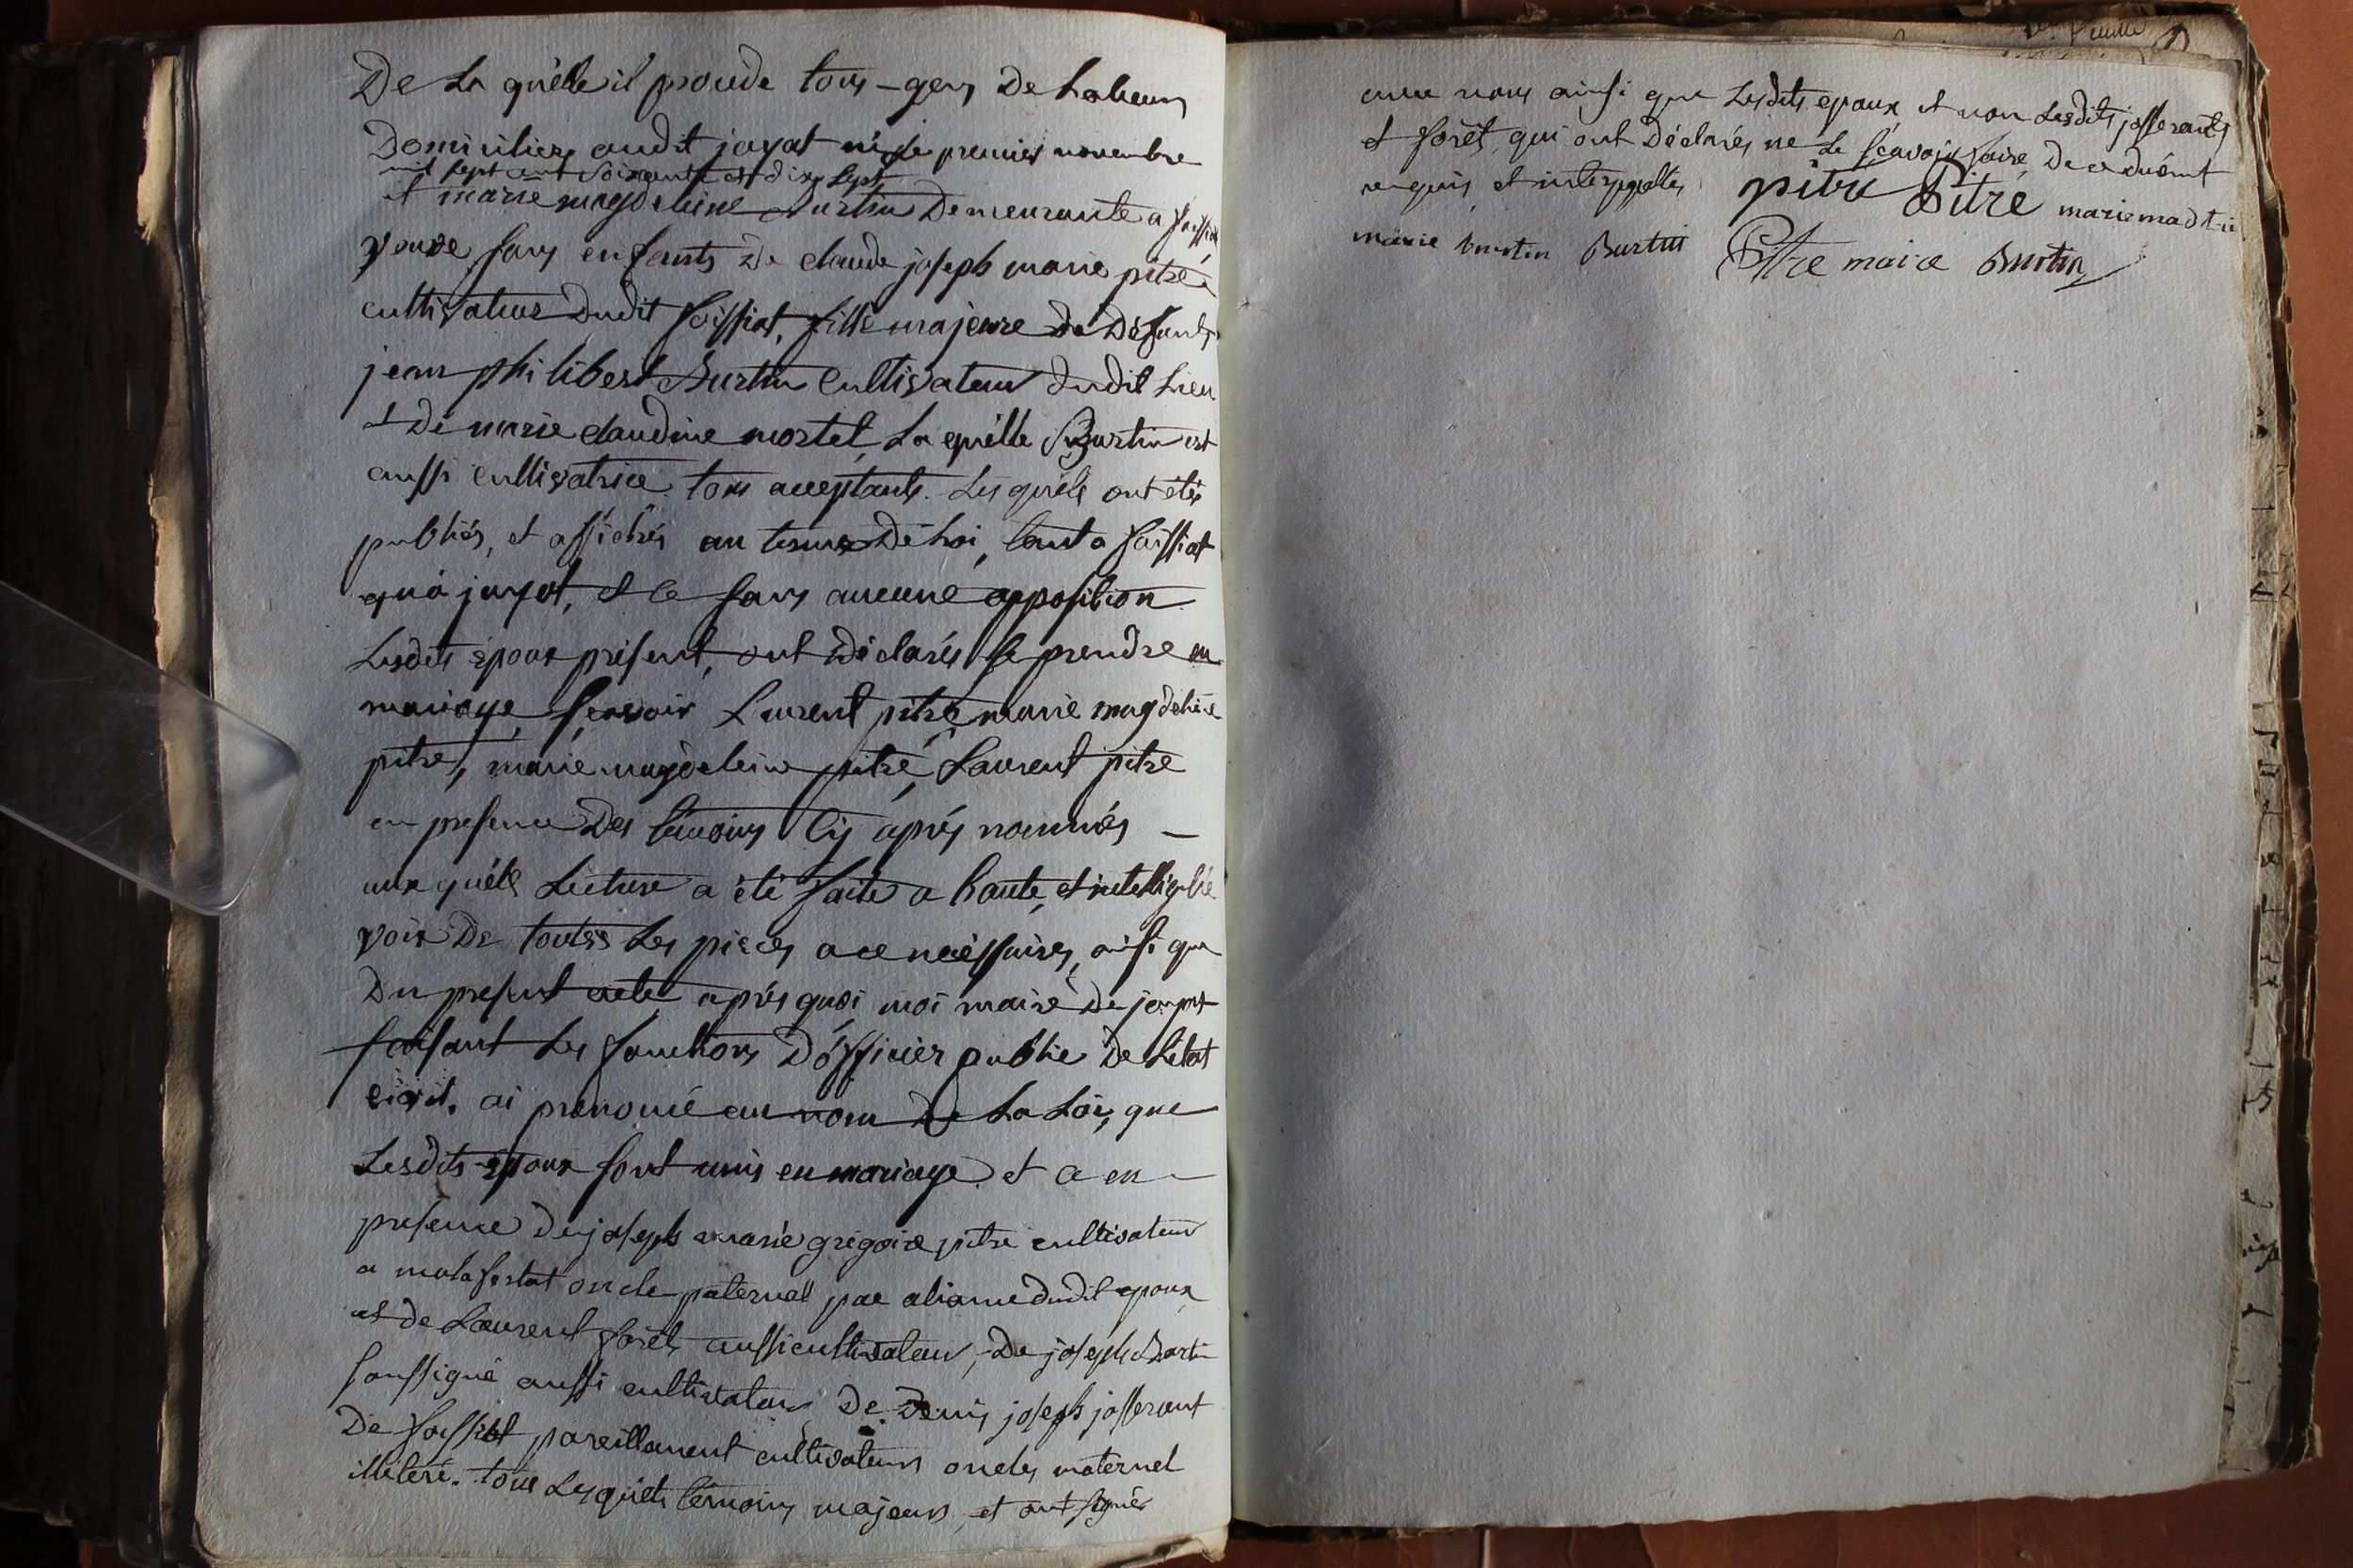 De La quélle il proude tous - gens De Labeurs
Domiciliers audit jayat né le premier novembre
mil sept cent soixante et dix sept
et marie magdeleine Burtin Demeurante a foissiat
veuve sans enfants De claude joseph marie pitre
cultivateur Dudit foissiat, fille majeure De Défunts
jean philibert Burtin Cultivateur Dudit Lieu
et De marie claudine mortel, La quélle Burtin est
aussi cultivatrice tous acceptants. Les quéls ont étés
publiés, et affichés au terme De Loi, tant a foissiat
qu'a jayat, et ce sans aucune opposition
Lesdits époux présent, ont Déclarés se prendre en
mariage, sçavoir Laurent pitre, marie magdeleine
pitre, marie magdeleine pitre, Laurent pitre
en presence Des témoins Cy aprés nommés -
aux quéls Lecture a été faite a haute, et intelligible
voix De toutes Les pieces a ce nécéssaires, ainsi que
Du present acte aprés quoi moi maire De jayat
faisant Les fonctions D'officier public De Létat
civil. ai prénoncé au nom De La Loi, que
Lesdits époux sont unis en mariage et ce en -
presence De joseph marie gregoire pitre cultivateur
a malafretat oncle paternel par aliance dudit epoux
et de Laurent forêt aussi cultivateur, De joseph Burtin
soussigné aussi cultivateur De Denis joseph josserant
De foissiat pareillement cultivateurs oncles maternel
illiteré. tous Lesquéls témoins majeurs, et ont signés
avec nous ainsi que Lesdits epoux et non Lesdits josserants
et forêt, qui ont Déclarés ne Le sçavoir faire, De ce Duëment
requis et interppellés pitre Pitre marie mad
marie burtin Burtin Pitre maire Burtin